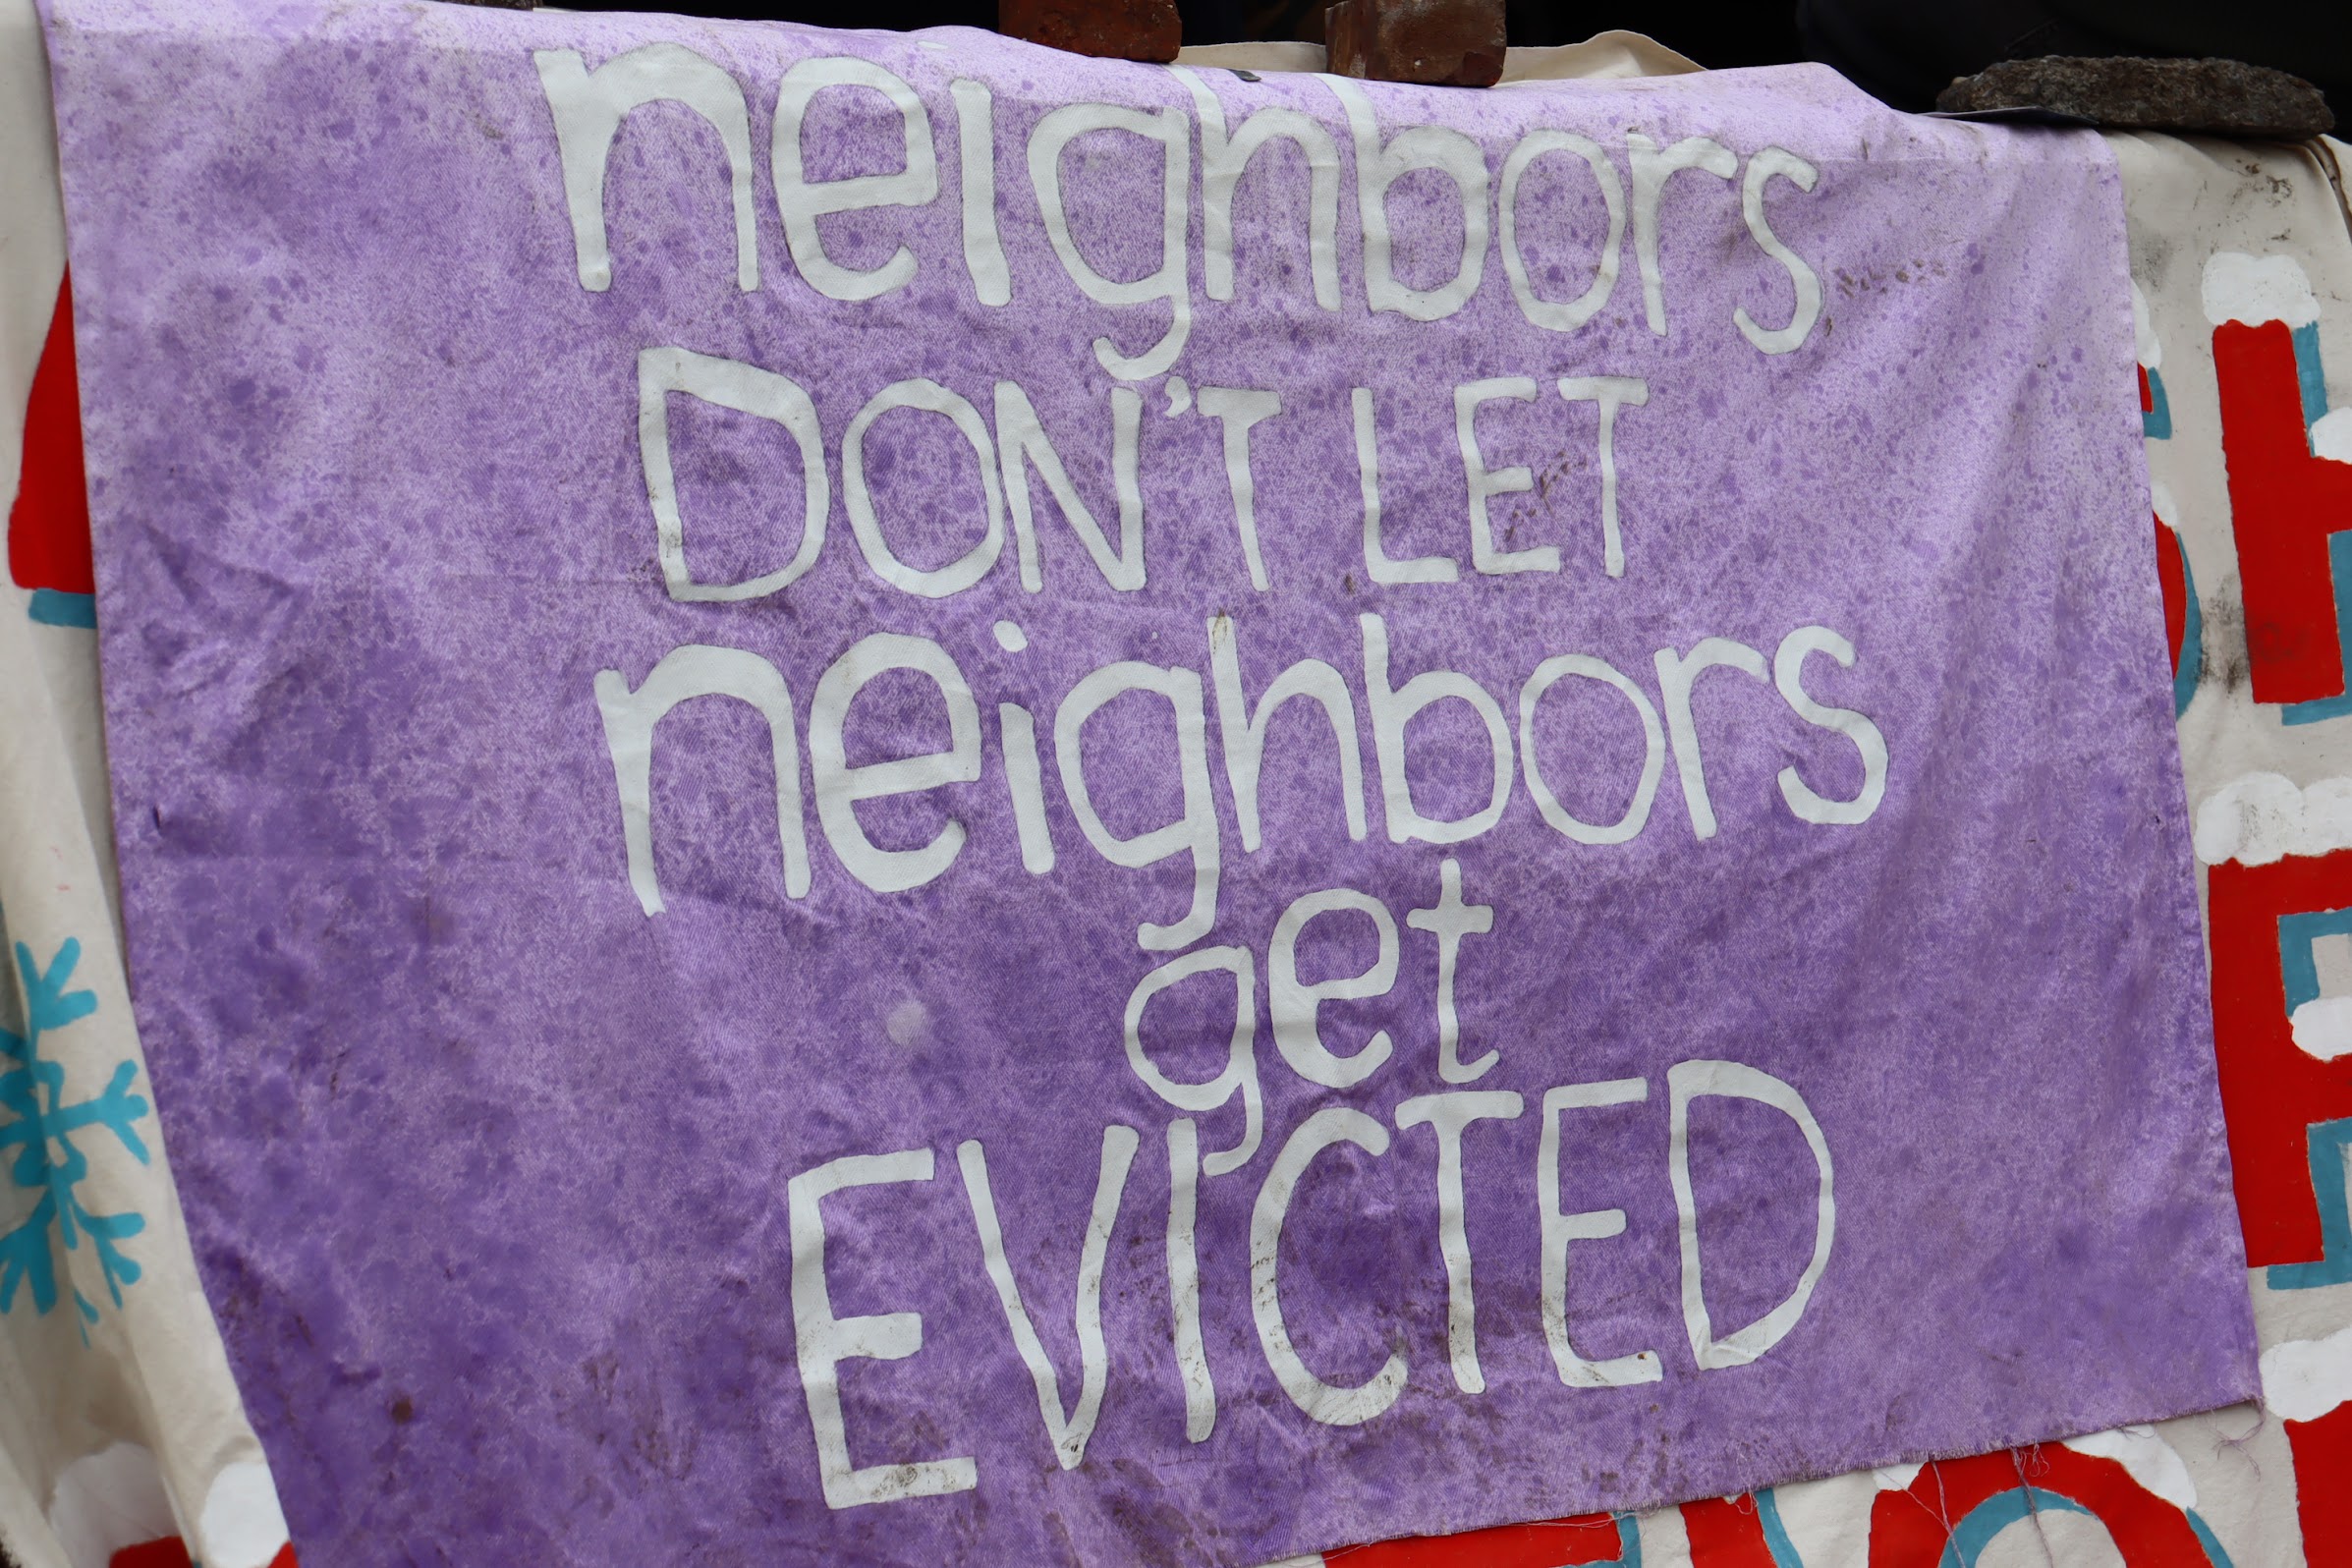 neighbors
DON'T LET
neighbors
get
EVICTED